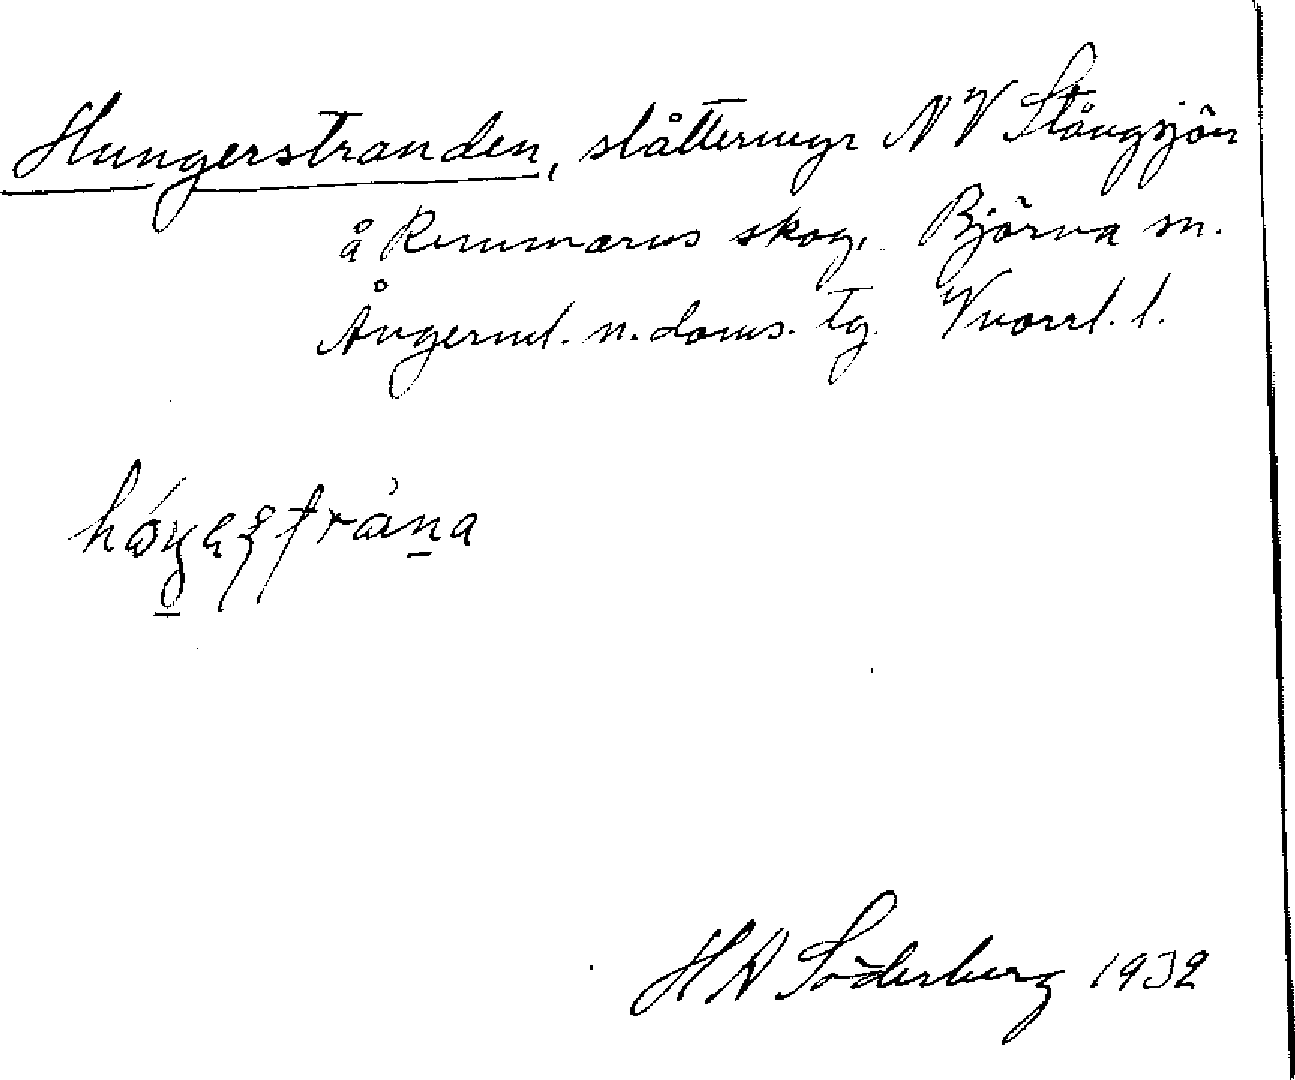 Hungerstranden, slåttermyr NV Stångsjön
å Remmarns skog, Björna sn.
Ångerml. n. doms. tg. Vnorrl. l.
H A Söderberg 1932